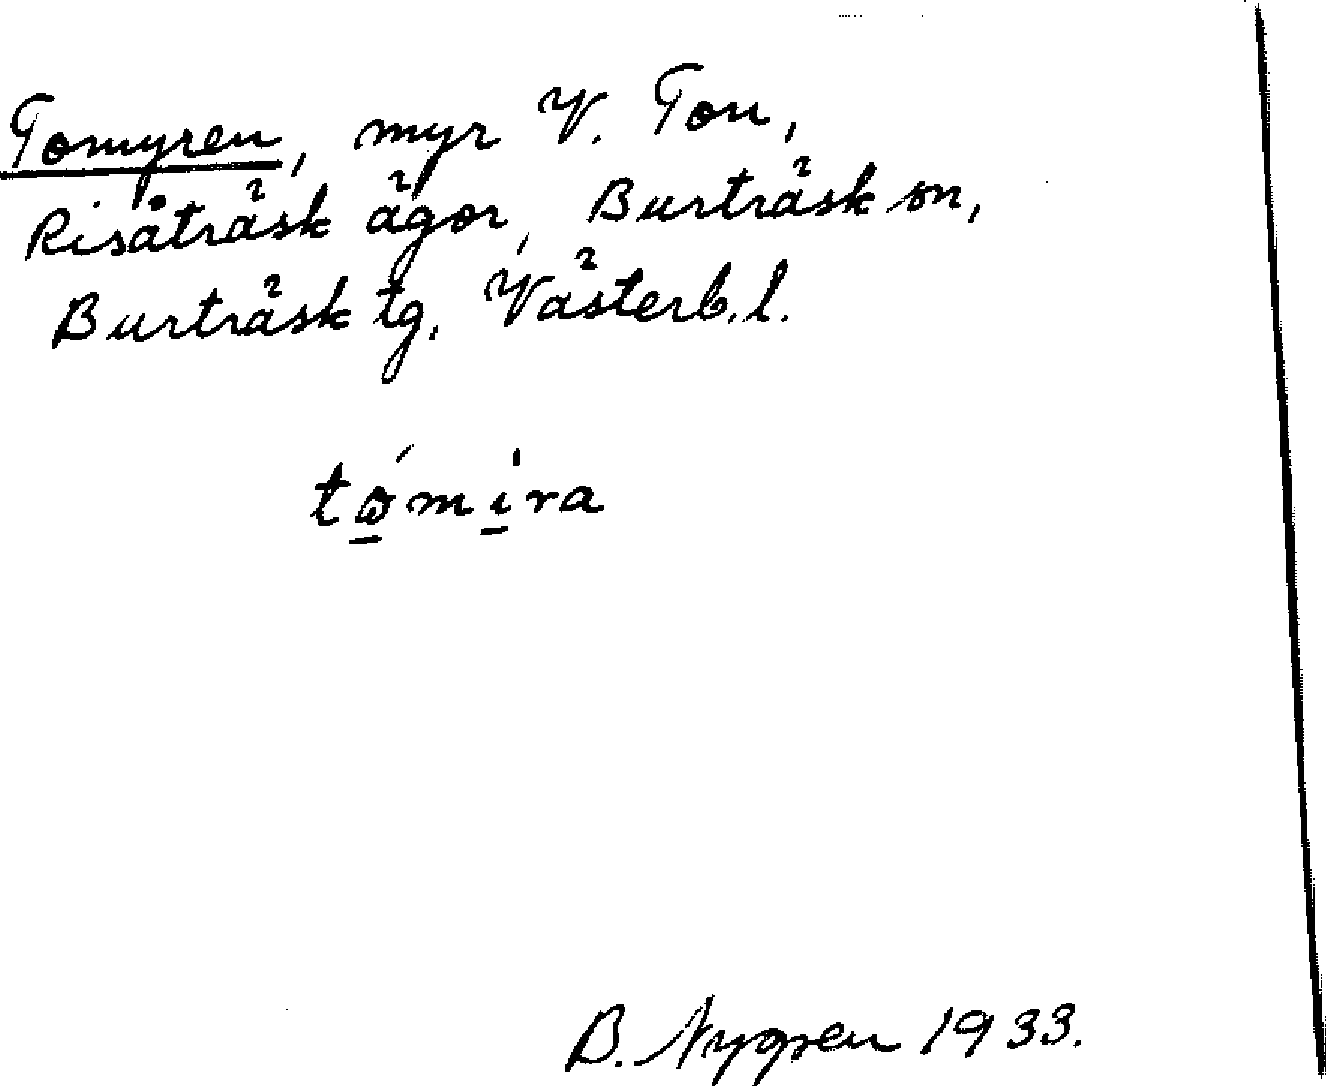 Tomyren, myr V. Ton,
Risåträsk ägor, Burträsk sn,
Burträsk tg. Västerb. l.
tómíra
B. Nygren 1933.